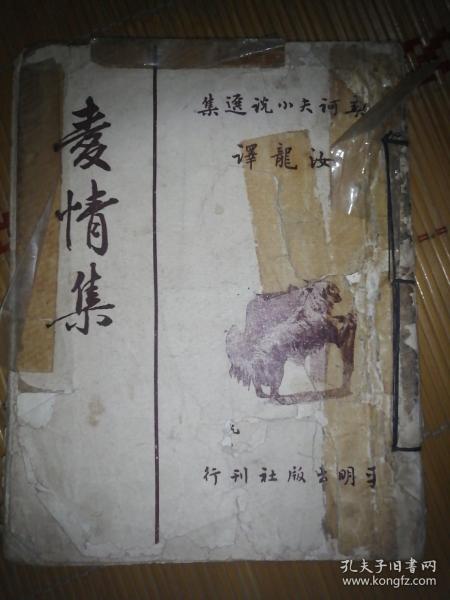 契訶夫小説選集
汝龍譯
愛情集
平明出版社刊行
孔夫子旧书网
www.kongfz.com